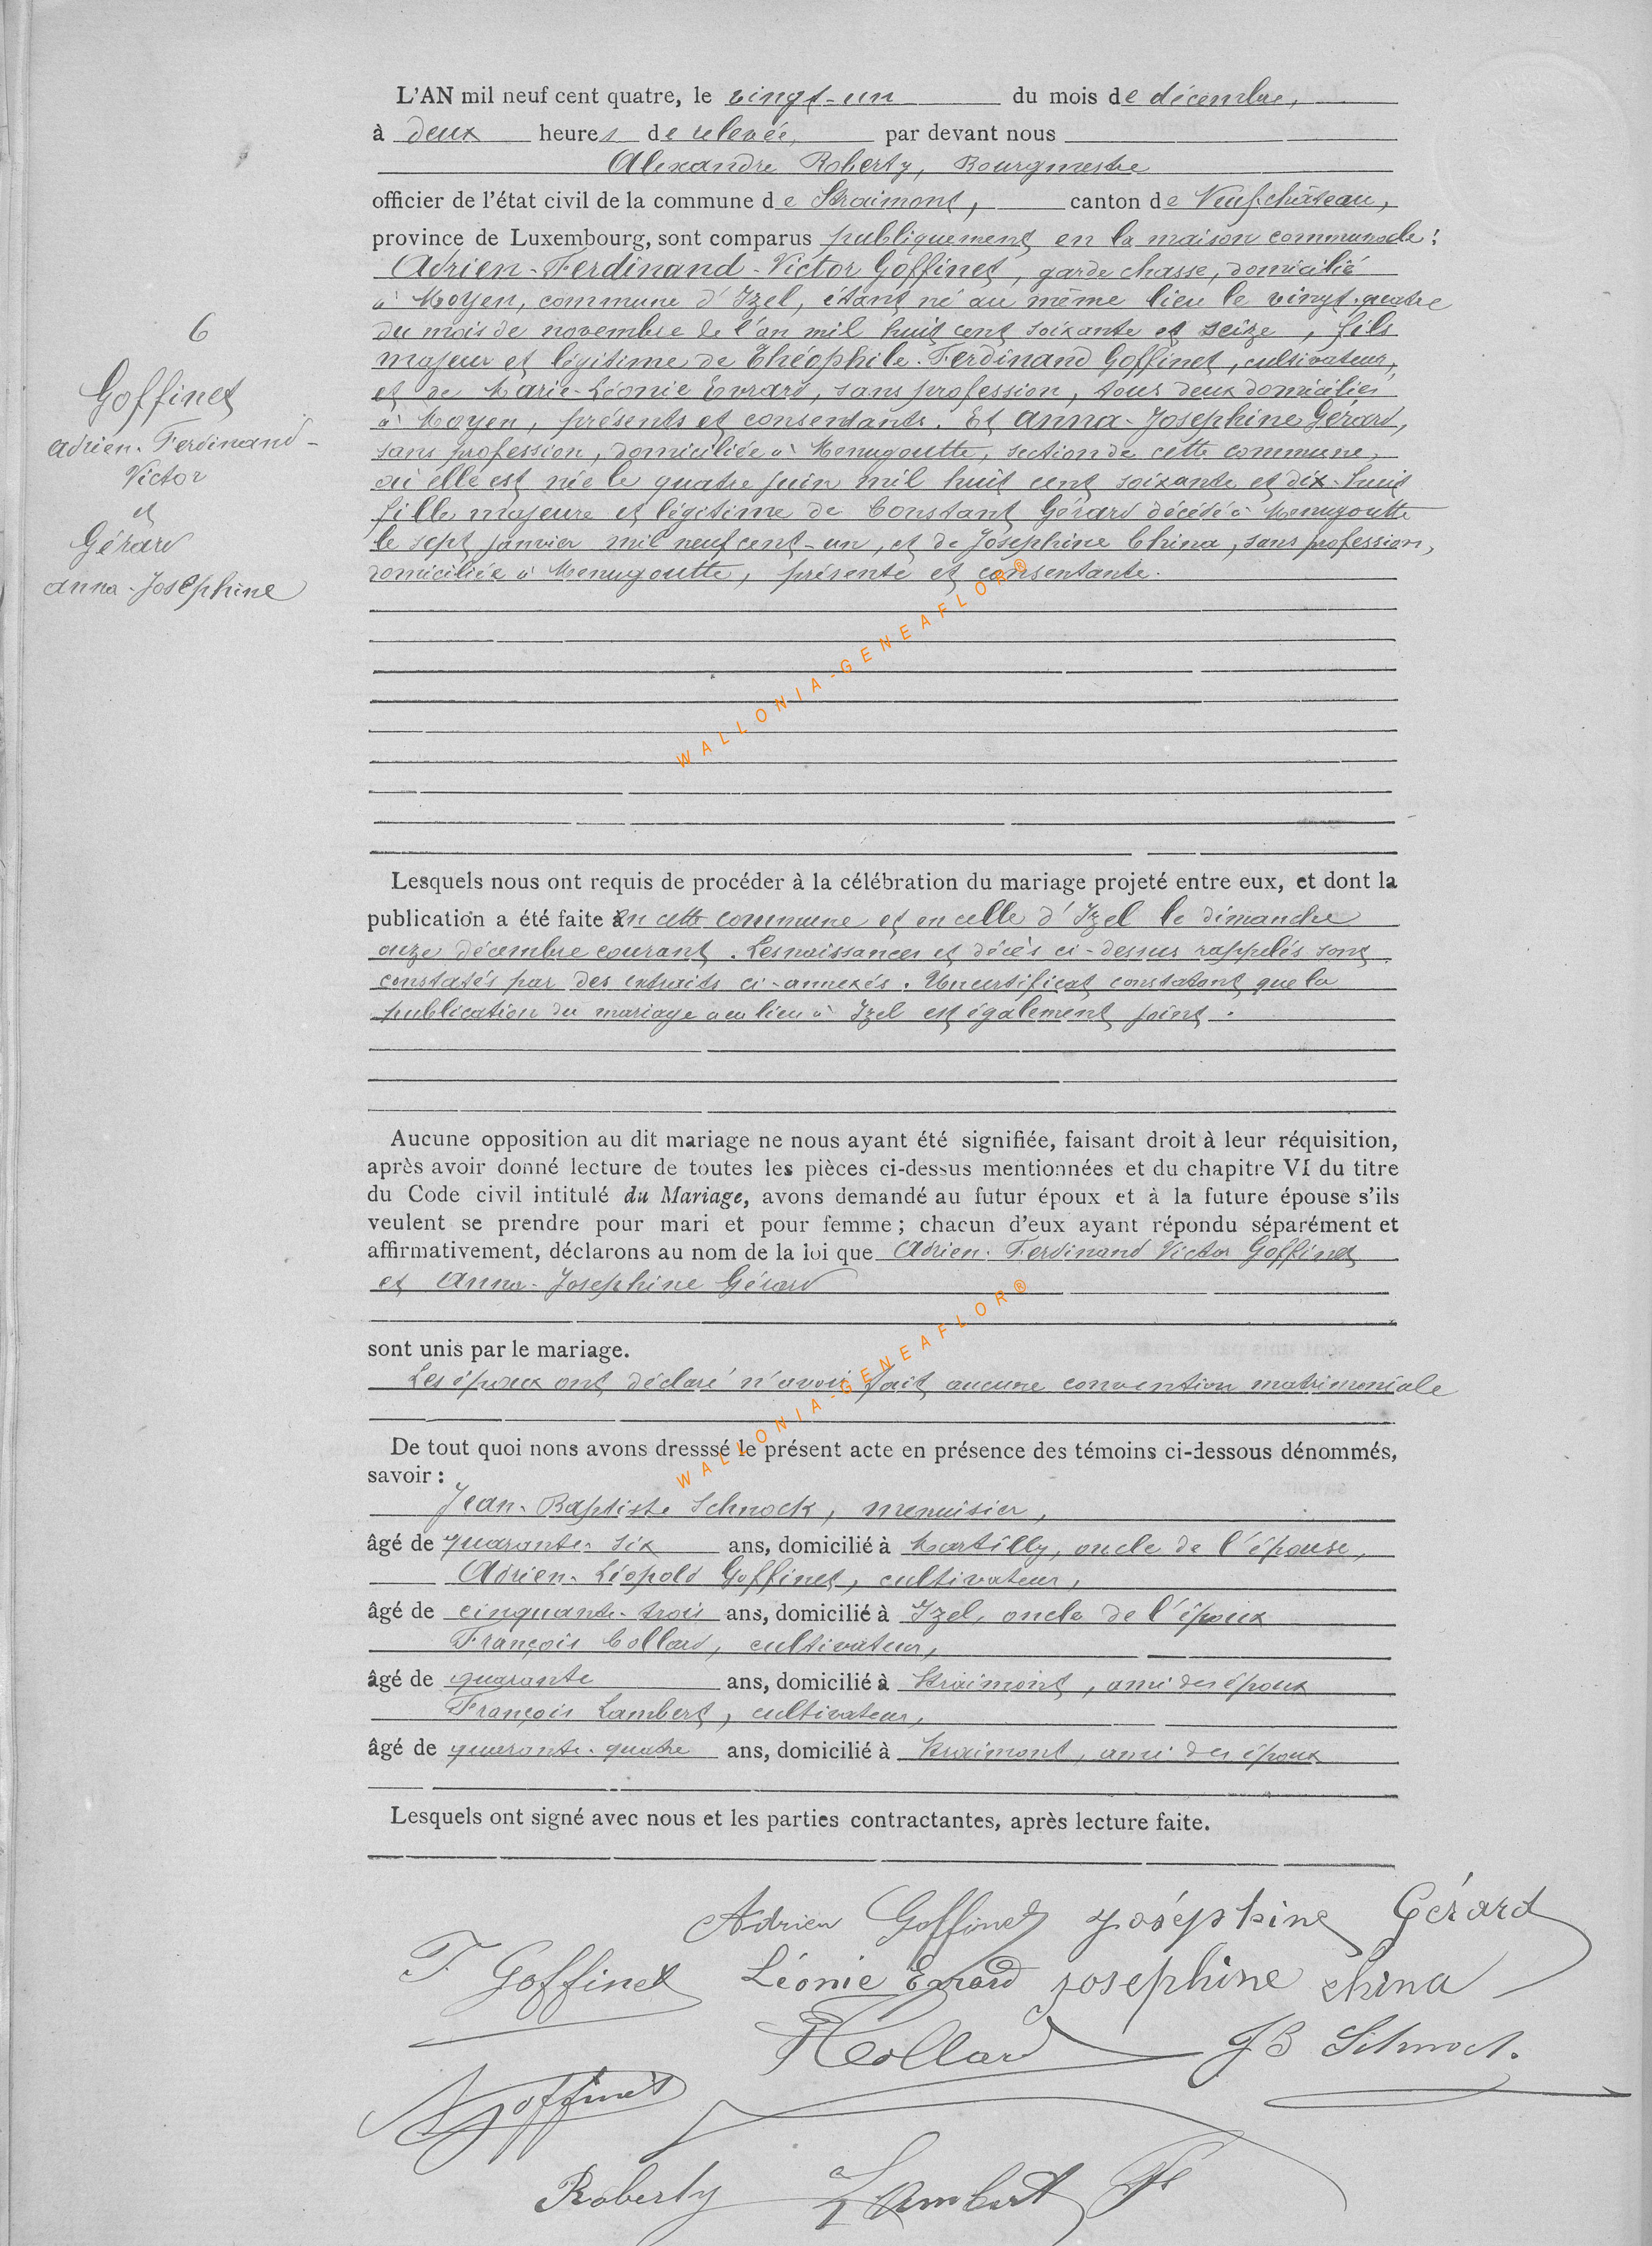 L'AN mil neuf cent quatre, le vingt-un du mois de décembre,
à deux heures de relevée, par devant nous
Alexandre Roberty, Bourgmestre
officier de l'état civil de la commune de Straimont, canton de Neufchâteau,
province de Luxembourg, sont comparus publiquement en la maison communale :
Adrien-Ferdinand-Victor Goffinet, garde chasse, domicilié
à Moyen, commune d'Izel, étant né au même lieu le vingt-quatre
du mois de novembre de l'an mil huit cent soixante et seize, fils
majeur et légitime de Théophile-Ferdinand Goffinet, cultivateur,
et de Marie-Léonie Evrard, sans profession, tous deux domiciliés
à Moyen, présents et consentants. Et Anna-Josephine Gérard,
sans profession, domiciliée à Menugoutte, section de cette commune,
où elle est née le quatre juin mil huit cent soixante et dix-huit
fille majeure et légitime de Constant Gérard décédé à Menugoutte
le sept janvier mil neuf cent-un, et de Joséphine China, sans profession,
domiciliée à Menugoutte, présente et consentante.
6
Goffinet
Adrien-Ferdinand-
Victor
et
Gérard
Anna-Josephine
WALLONIA-GENEAFLOR®
Lesquels nous ont requis de procéder à la célébration du mariage projeté entre eux, et dont la
publication a été faite en cette commune et en celle d'Izel le dimanche
onze décembre courant. Les naissances et décès ci-dessus rappelés sont
constatés par des extraits ci-annexés. Un certificat constatant que la
publication du mariage a eu lieu à Izel est également joint.
Aucune opposition au dit mariage ne nous ayant été signifiée, faisant droit à leur réquisition,
après avoir donné lecture de toutes les pièces ci-dessus mentionnées et du chapitre VI du titre
du Code civil intitulé du Mariage, avons demandé au futur époux et à la future épouse s'ils
veulent se prendre pour mari et pour femme ; chacun d'eux ayant répondu séparément et
affirmativement, déclarons au nom de la loi que Adrien-Ferdinand Victor Goffinet
et Anna-Josephine Gérard
sont unis par le mariage.
Les époux ont déclaré n'avoir fait aucune convention matrimoniale
WALLONIA-GENEAFLOR®
De tout quoi nons avons dresssé le présent acte en présence des témoins ci-dessous dénommés,
savoir :
Jean-Baptiste Schnock, menuisier,
âgé de quarante-six ans, domicilié à Martilly, oncle de l'épouse,
Adrien-Léopold Goffinet, cultivateur,
âgé de cinquante-trois ans, domicilié à Izel, oncle de l'époux
François Collard, cultivateur,
âgé de quarante ans, domicilié à Straimont, ami des époux
François Lambert, cultivateur,
âgé de quarante-quatre ans, domicilié à Straimont, ami des époux
Lesquels ont signé avec nous et les parties contractantes, après lecture faite.
Adrien Goffinet Joséphine Gérard
T Goffinet Léonie Evrard Josephine China
F Collard JB Schnock.
A Goffinet
Roberty Lambert Fs